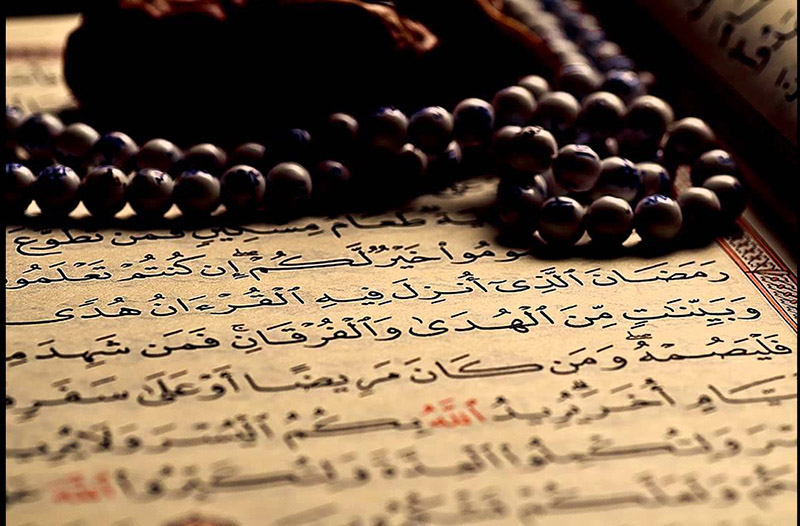 طَعَامُ مِسْكِينٍ فَمَن تَطَوَّعَ
خَيْرٌ لَّكُمْ إِن كُنتُمْ تَعْلَمُو
رَمَضَانَ ٱلَّذِىٓ أُنزِلَ فِيهِ ٱلْقُرْءَانُ هُدًى
وَبَيِّنَٰتٍ مِّنَ ٱلْهُدَىٰ وَٱلْفُرْقَانِ ۚ فَمَن شَهِدَ
فَلْيَصُمْهُ ۖ وَمَن كَانَ مَرِيضًا أَوْ عَلَىٰ سَفَرٍ
أُخَرَ ۗ يُرِيدُ ٱللَّهُ بِكُمُ ٱلْيُسْرَ وَلَا
وَلِتُكْمِلُوا۟ ٱلْعِدَّةَ وَلِتُكَبِّرُوا۟ ٱللَّهَ
وَلَعَلَّكُمْ